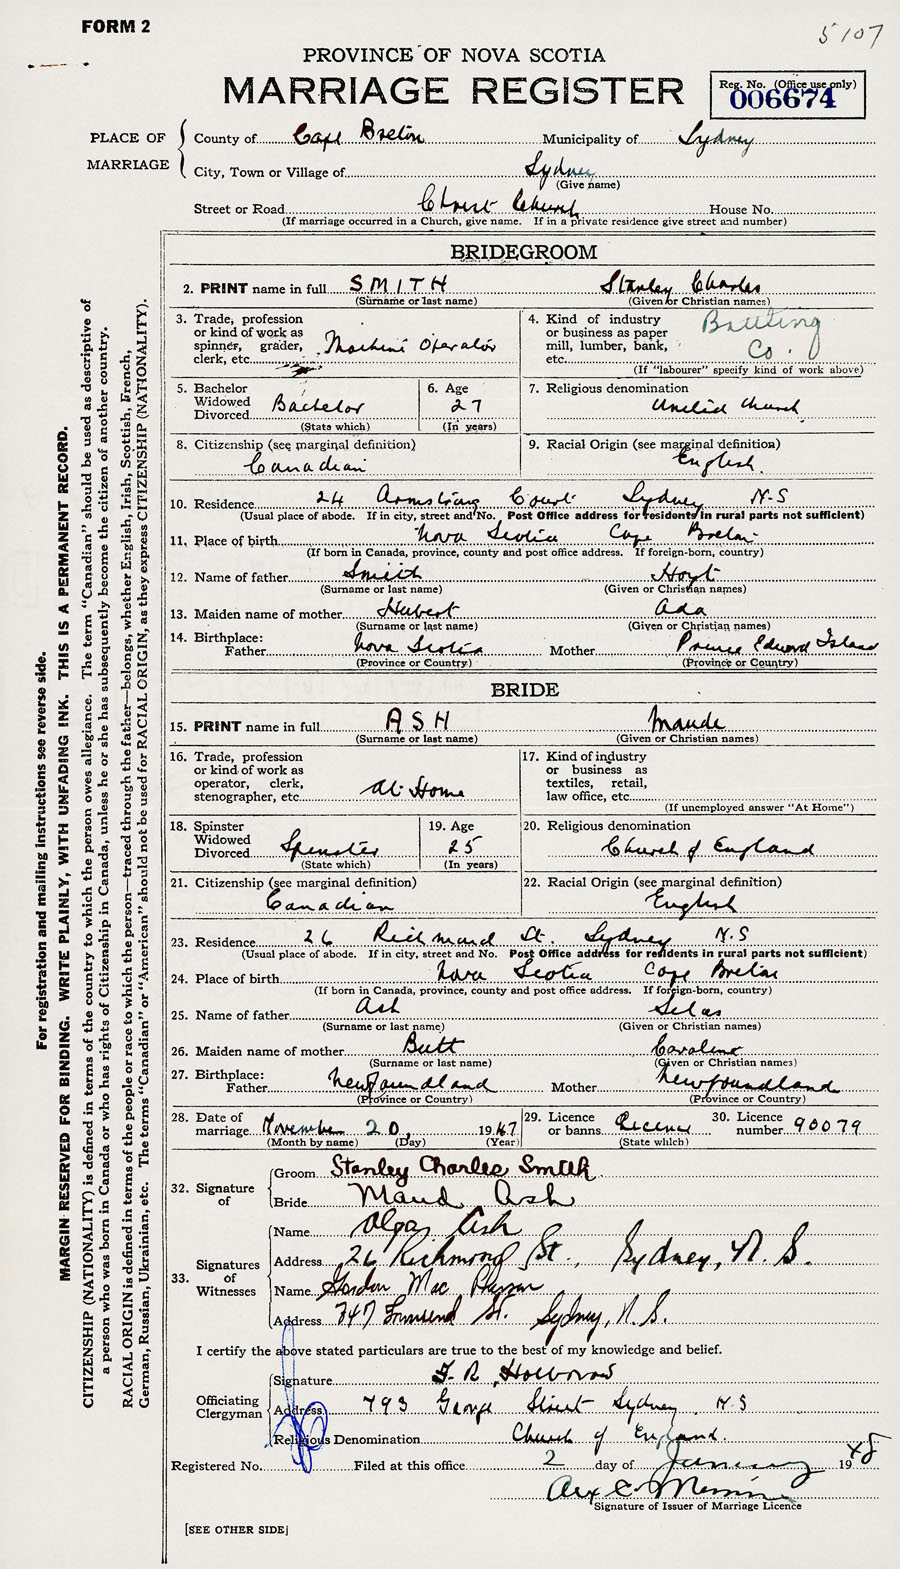 FORM 2
5107
PROVINCE OF NOVA SCOTIA
MARRIAGE REGISTER
Reg. No. (Office use only)
006674
PLACE OF MARRIAGE
County of Cape Breton Municipality of Sydney
City, Town or Village of Sydney
(Give name)
Street or Road Christ Church House No.
(If marriage occurred in a Church, give name. If in a private residence give street and number)
BRIDEGROOM
2. PRINT name in full SMITH Stanley Charles
(Surname or last name) (Given or Christian names)
3. Trade, profession or kind of work as spinner, grader, clerk, etc. Machine Operator
4. Kind of industry or business as paper mill, lumber, bank, etc. Bottling Co.
(If "labourer" specify kind of work above)
5. Bachelor Widowed Divorced Bachelor
(State which)
6. Age 27
(In years)
7. Religious denomination United Church
8. Citizenship (see marginal definition)
Canadian
9. Racial Origin (see marginal definition)
English.
10. Residence 24 Armstrong Court Sydney N.S
(Usual place of abode. If in city, street and No. Post Office address for residents in rural parts not sufficient)
11. Place of birth Nova Scotia Cape Breton
(If born in Canada, province, county and post office address. If foreign-born, country)
12. Name of father Smith Hoyt
(Surname or last name) (Given or Christian names)
13. Maiden name of mother Hubert Ada
(Surname or last name) (Given or Christian names)
14. Birthplace:
Father Nova Scotia Mother Prince Edward Island
(Province or Country) (Province or Country)
BRIDE
15. PRINT name in full ASH Maude
(Surname or last name) (Given or Christian names)
16. Trade, profession or kind of work as operator, clerk, stenographer, etc. At Home
17. Kind of industry or business as textiles, retail, law office, etc.
(If unemployed answer "At Home")
18. Spinster Widowed Divorced Spinster
(State which)
19. Age 25
(In years)
20. Religious denomination
Church of England
21. Citizenship (see marginal definition)
Canadian
22. Racial Origin (see marginal definition)
English
23. Residence 26 Richmond St. Sydney N.S
(Usual place of abode. If in city, street and No. Post Office address for residents in rural parts not sufficient)
24. Place of birth Nova Scotia Cape Breton
(If born in Canada, province, county and post office address. If foreign-born, country)
25. Name of father Ash Silas
(Surname or last name) (Given or Christian names)
26. Maiden name of mother Butt Caroline
(Surname or last name) (Given or Christian names)
27. Birthplace:
Father Newfoundland Mother Newfoundland
(Province or Country) (Province or Country)
28. Date of marriage November 20, 1947
(Month by name) (Day) (Year)
29. Licence or banns Licence
(State which)
30. Licence number 90079
32. Signature of
Groom Stanley Charles Smith
Bride Maud Ash
33. Signatures of Witnesses
Name Olga Ash
Address 26 Richmond St., Sydney, N.S.
Name Gordon Mac
Address 347 Townsend St. Sydney, N.S.
I certify the above stated particulars are true to the best of my knowledge and belief.
Officiating Clergyman
Signature F. R.
Address 793 George Street Sydney N.S
Religious Denomination Church of England.
Registered No. Filed at this office 2 day of January 1948
Signature of Issuer of Marriage Licence
[SEE OTHER SIDE]
For registration and mailing instructions see reverse side.
MARGIN RESERVED FOR BINDING. WRITE PLAINLY, WITH UNFADING INK. THIS IS A PERMANENT RECORD.
CITIZENSHIP (NATIONALITY) is defined in terms of the country to which the person owes allegiance. The term "Canadian" should be used as descriptive of
a person who was born in Canada or who has rights of Citizenship in Canada, unless he or she has subsequently become the citizen of another country.
RACIAL ORIGIN is defined in terms of the people or race to which the person—traced through the father—belongs, whether English, Irish, Scottish, French,
German, Russian, Ukrainian, etc. The terms "Canadian" or "American" should not be used for RACIAL ORIGIN, as they express CITIZENSHIP (NATIONALITY).